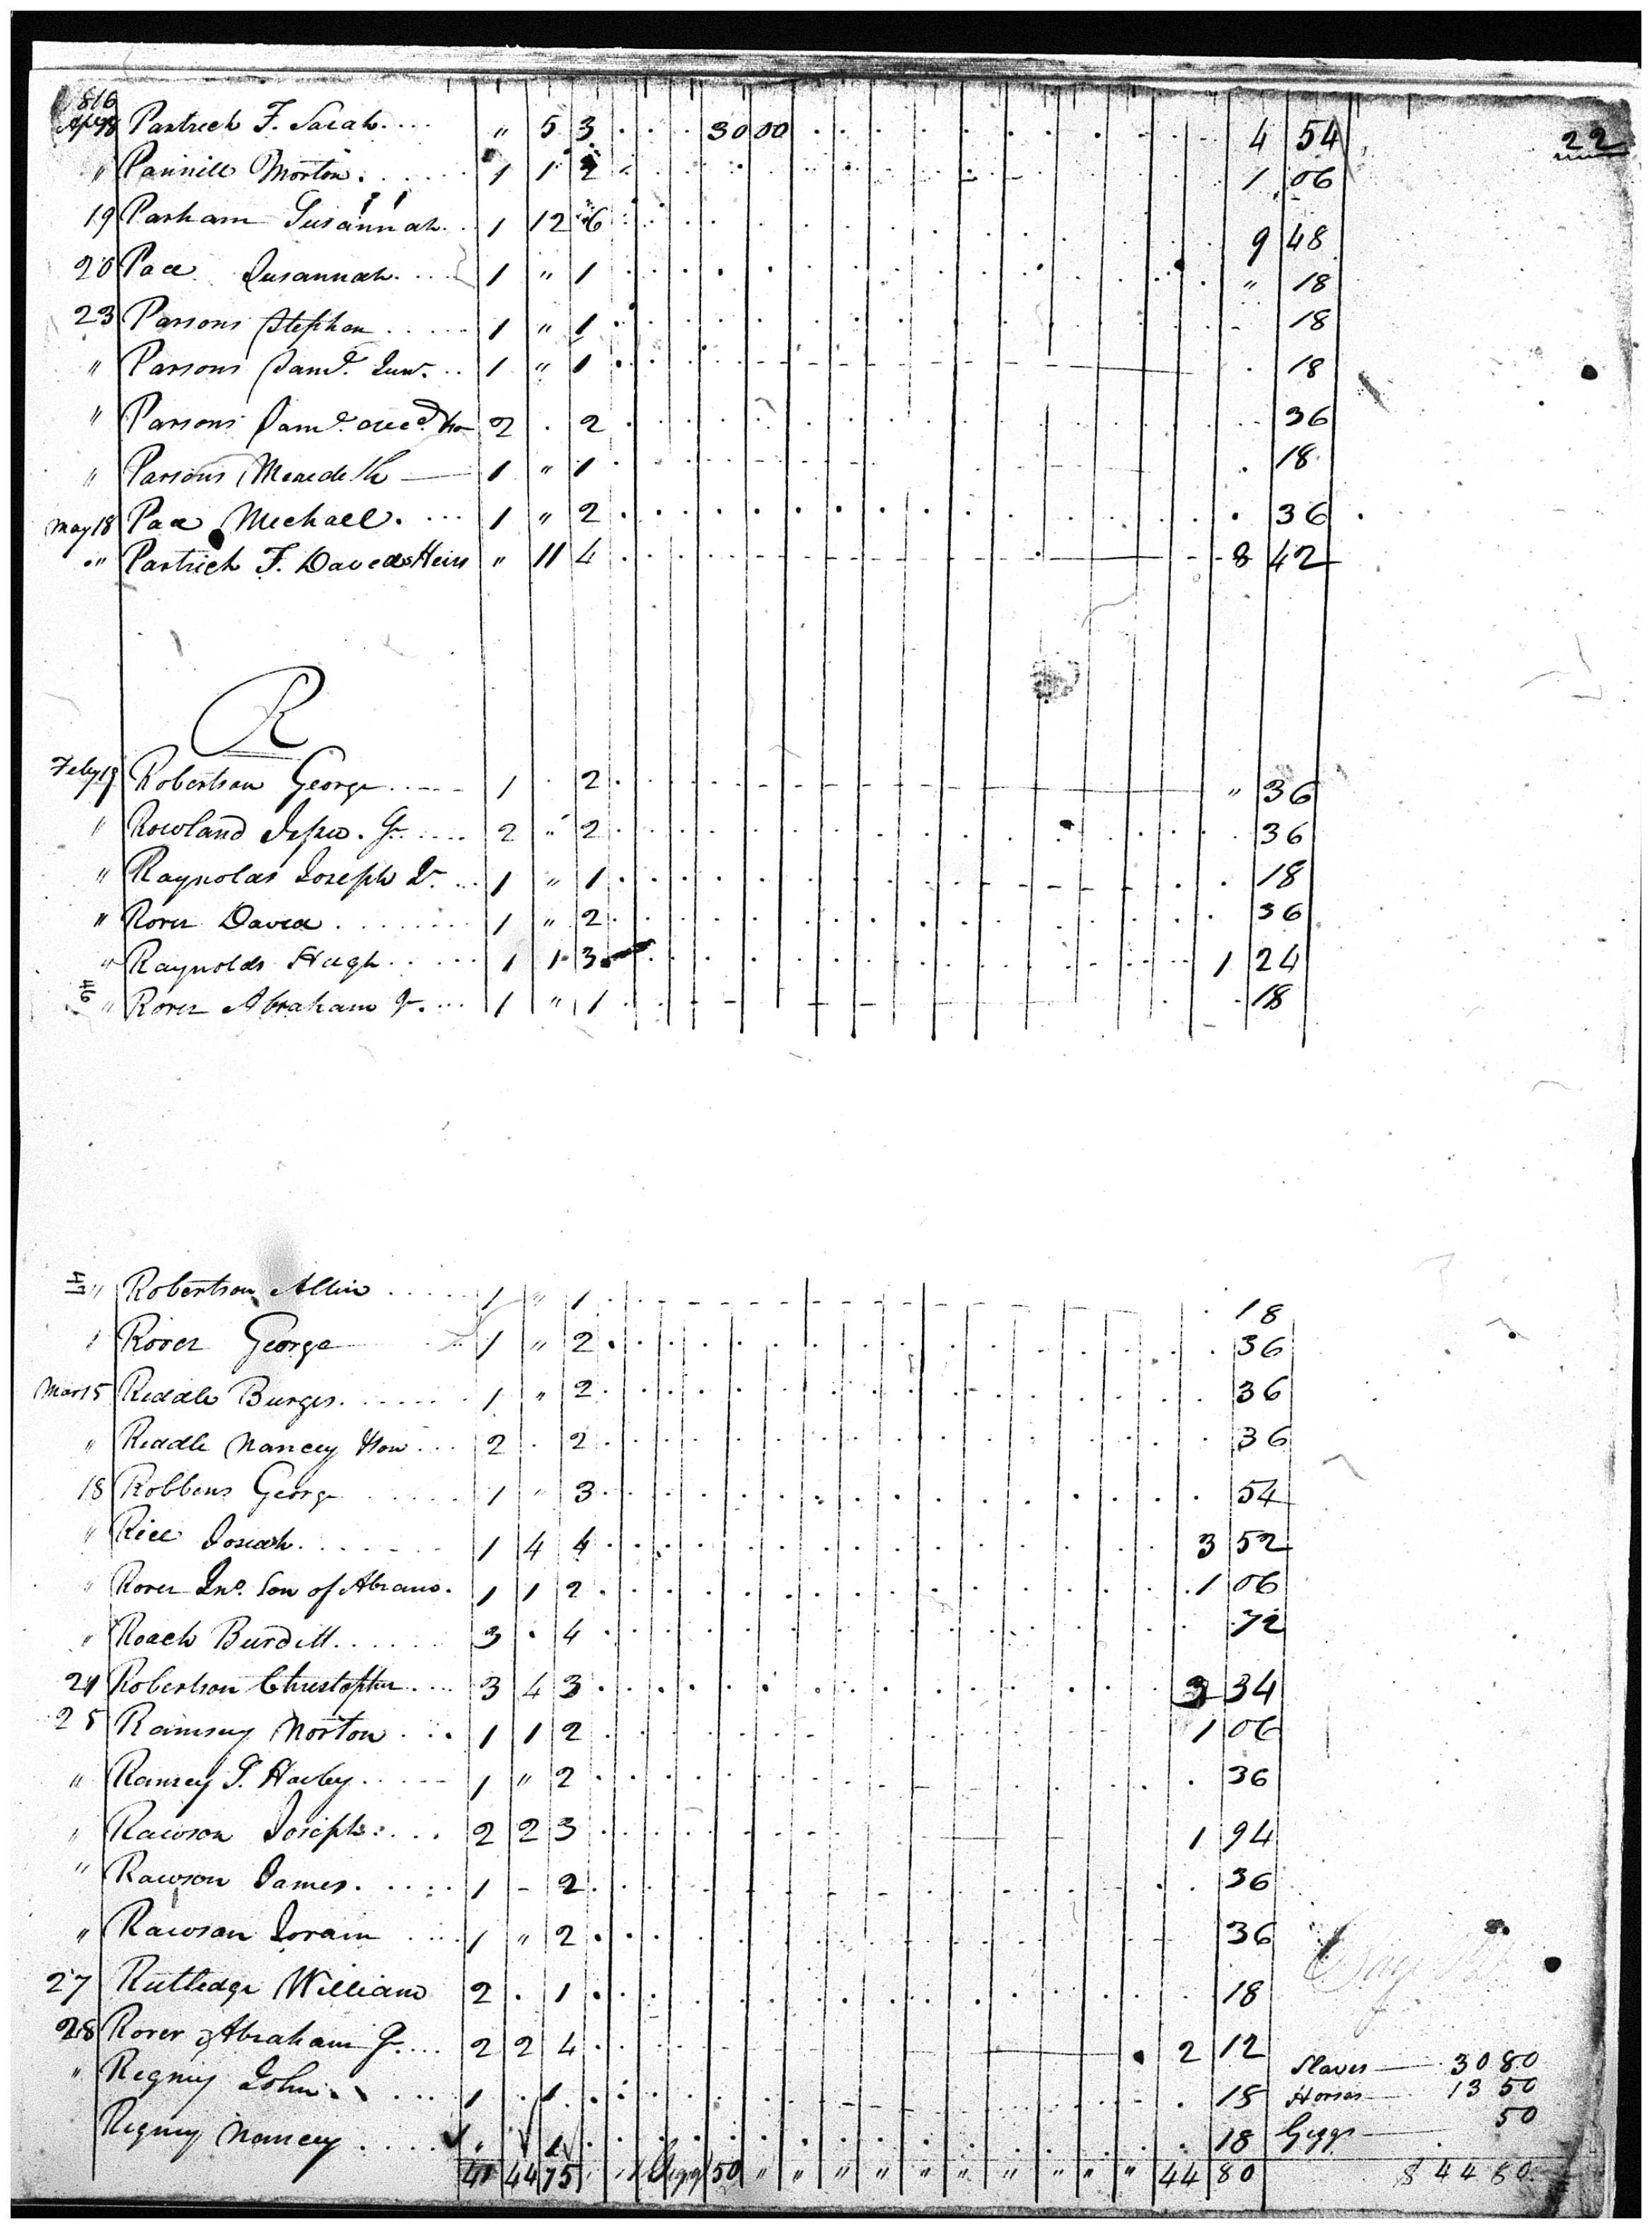 816
Apl 18 Partrick F. Sarah.... " 5 3 . . . 30 00 . . . 4 54
22
" Pannill Morton...... 1 1 2 1 06
19 Parham Susannah.. 1 12 6 9 48
20 Pace Susannah.... 1 " 1 " 18
23 Parsons Stephen..... 1 " 1 18
" Parsons Saml. Junr... 1 " 1 18
" Parsons Saml. decd. 2 . 2 36
" Parsons Meredeth 1 " 1 18
May 18 Pace Michael.... 1 " 2 36
" Partrick F. Davids Heirs " 11 4 8 42
R
Feby 19 Robertson George.... 1 . 2 " 36
" Rowland Jesse. 2 " 2 36
" Raynolds Joseph Jr... 1 " 1 18
" Rorer David....... 1 " 2 36
" Raynolds Hugh..... 1 1 3 1 24
46 " Rorer Abraham .... 1 " 1 18
47 " Robertson Allin.... 1 " 1 18
Rorer George 1 " 2 36
Mar 15 Riddle Burges...... 1 " 2 36
" Riddle Nancey 2 . 2 36
18 Robbens George..... 1 " 3 54
" Rice Josiah....... 1 4 4 3 52
" Rorer Jno. Son of Abram. 1 1 2 1 06
" Roach Burditt...... 3 . 4 72
24 Robertson Christopher.... 3 4 3 3 34
25 Ramsey Morton.... 1 1 2 1 06
" Ramsey T. Harley..... 1 " 2 36
" Rawson Joseph.... 2 2 3 1 94
" Rawson James..... 1 - 2 36
" Rawson Joram.... 1 " 2 36
27 Rutledge William 2 . 1 18
28 Rorer Abraham .... 2 2 4 2 12
Slaves — 30 80
" Regney John.... 1 . 1 18
Horses — 13 50
Regney Nancey.... . 1 18
Giggs — 50
41 44 75 1 Gigg 50 " " " " " " " " " " 44 80
$ 44 80